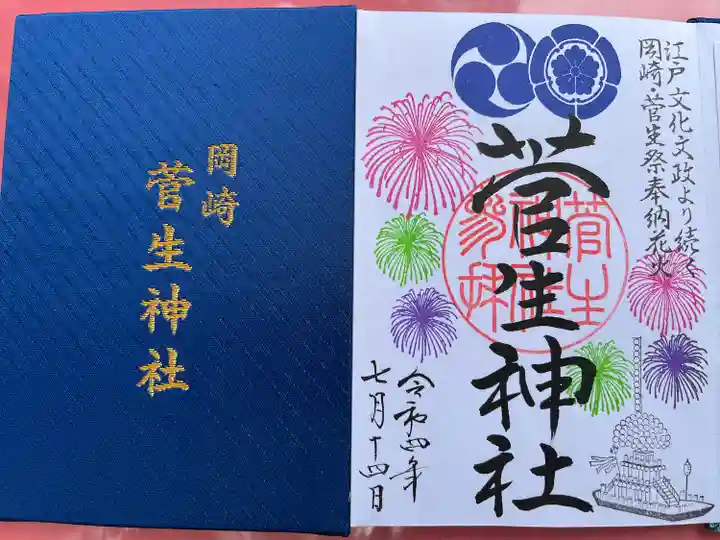 岡崎
菅生神社
江戸文化文政より続く
岡崎・菅生祭奉納花火
菅生神社
菅生
神社
参拝
令和四年
七月十四日